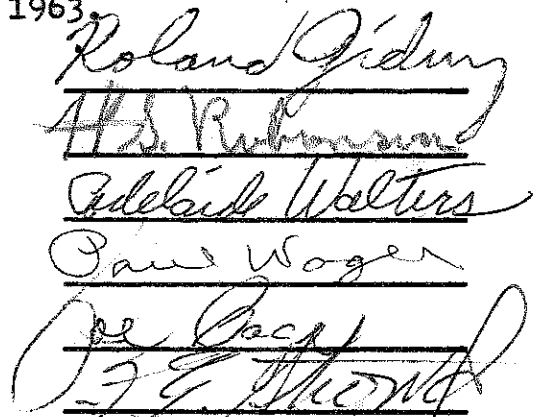 1963.
Roland Giduz
H.S. Robinson
Adelaide Walters
Paul Wager
Joe